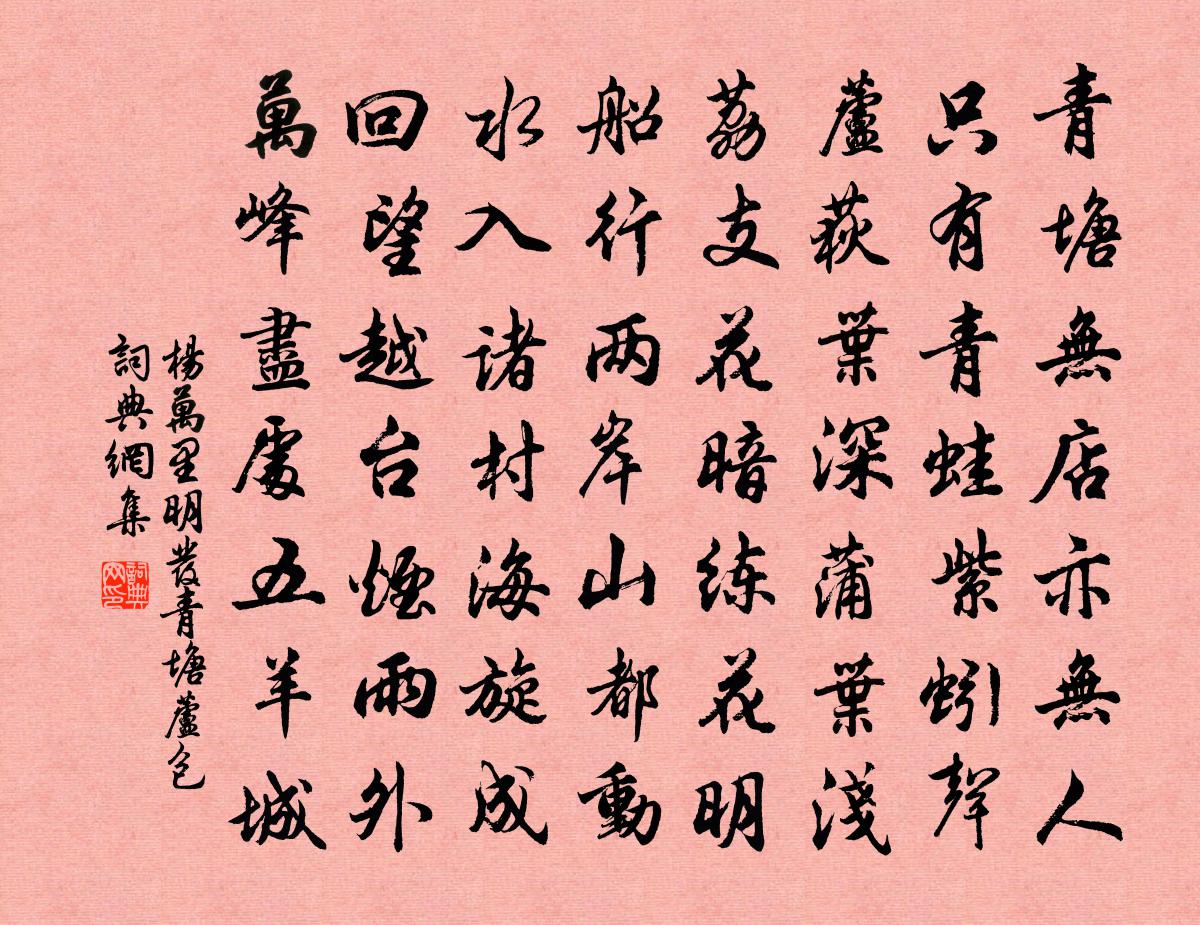 青塘無店亦無人
只有青蛙紫蚓聲
蘆荻葉深蒲葉淺
荔支花暗练花明
船行两岸山都動
水入诸村海旋成
回望越台煙雨外
萬峰盡處五羊城
楊萬里明发青塘蘆包
詞典網集
詞典网印